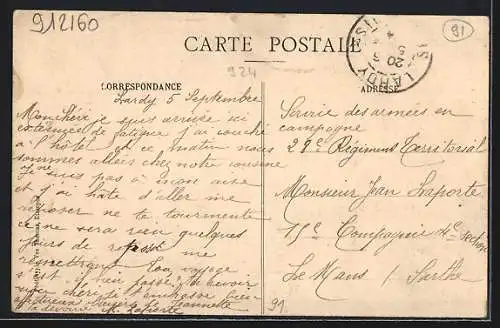 912160
91
CARTE POSTALE
924
CORRESPONDANCE
ADRESSE
LARDY
5
20
Lardy 5 Septembre
Mon chéri je suis arrivée ici
exténuée de fatigue j'ai couché
à l'hôtel et ce matin nous
sommes allées chez notre cousine
je ne suis pas à mon aise
et j'ai hâte d'aller me
reposer ne te tourmente
ce ne sera rien quelques
jours de repos me
remettront Ton voyage
s'est il bien passé
mon chéri je t'embrasse bien
de Jeannette
ta dévouée M. Laporte
Service des armées en
campagne
29e Régiment Territorial
Monsieur Jean Laporte
15e Compagnie 4e section
Le Mans / Sarthe
91.